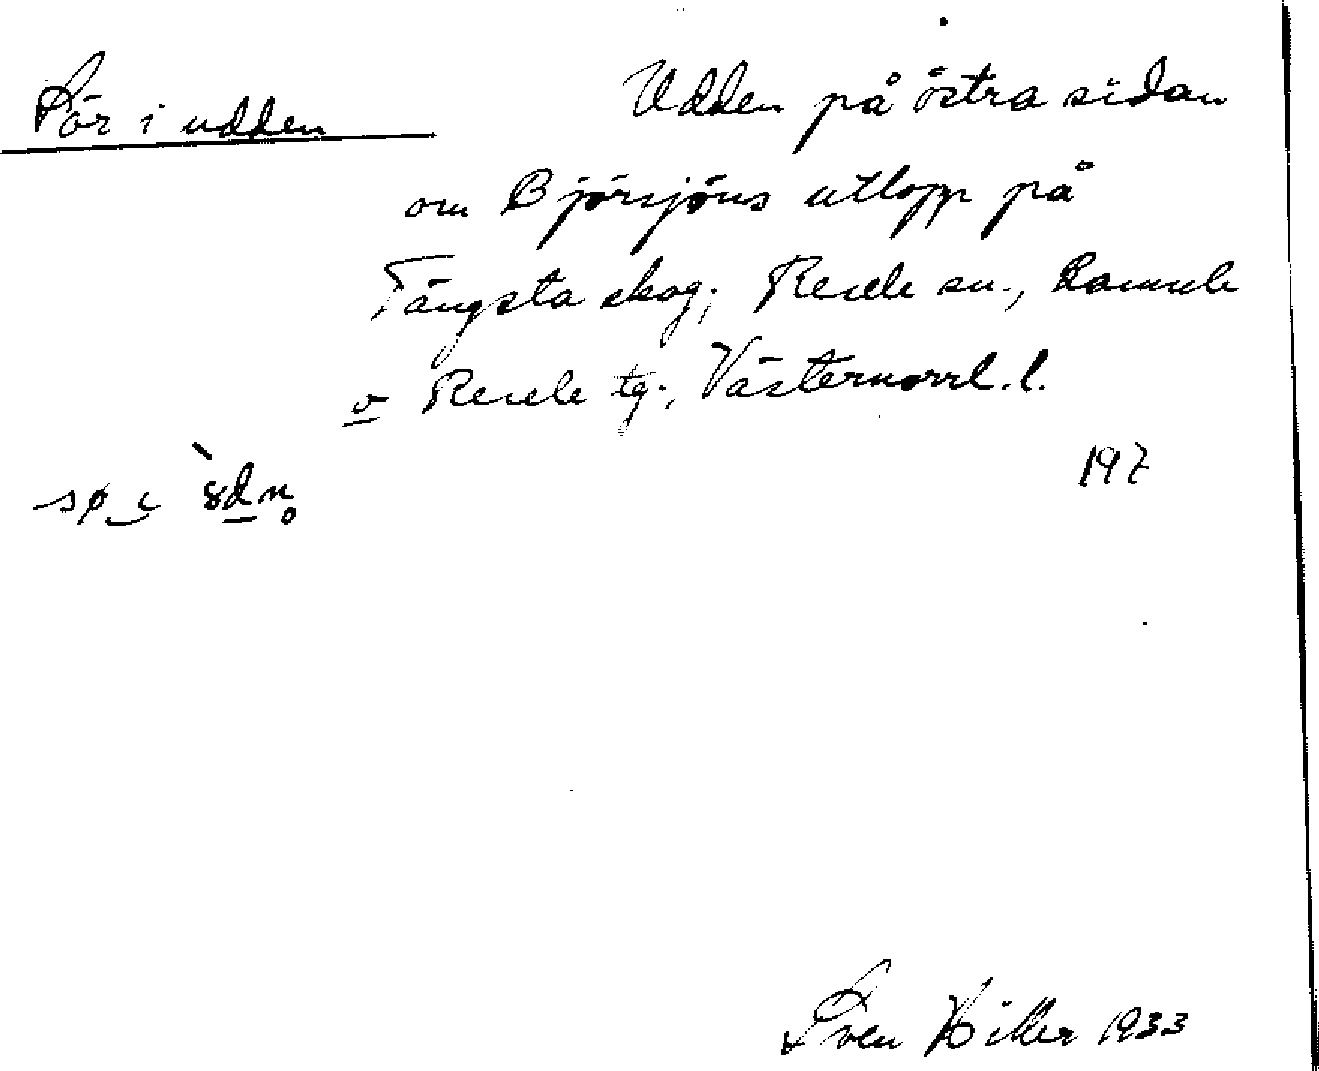 Sör i udden
Udden på östra sidan
om Björsjöns utlopp på
Tängsta skog; Resele sn., Ramsele
o Resele tg., Västernorrl. l.
197
Sven
1933